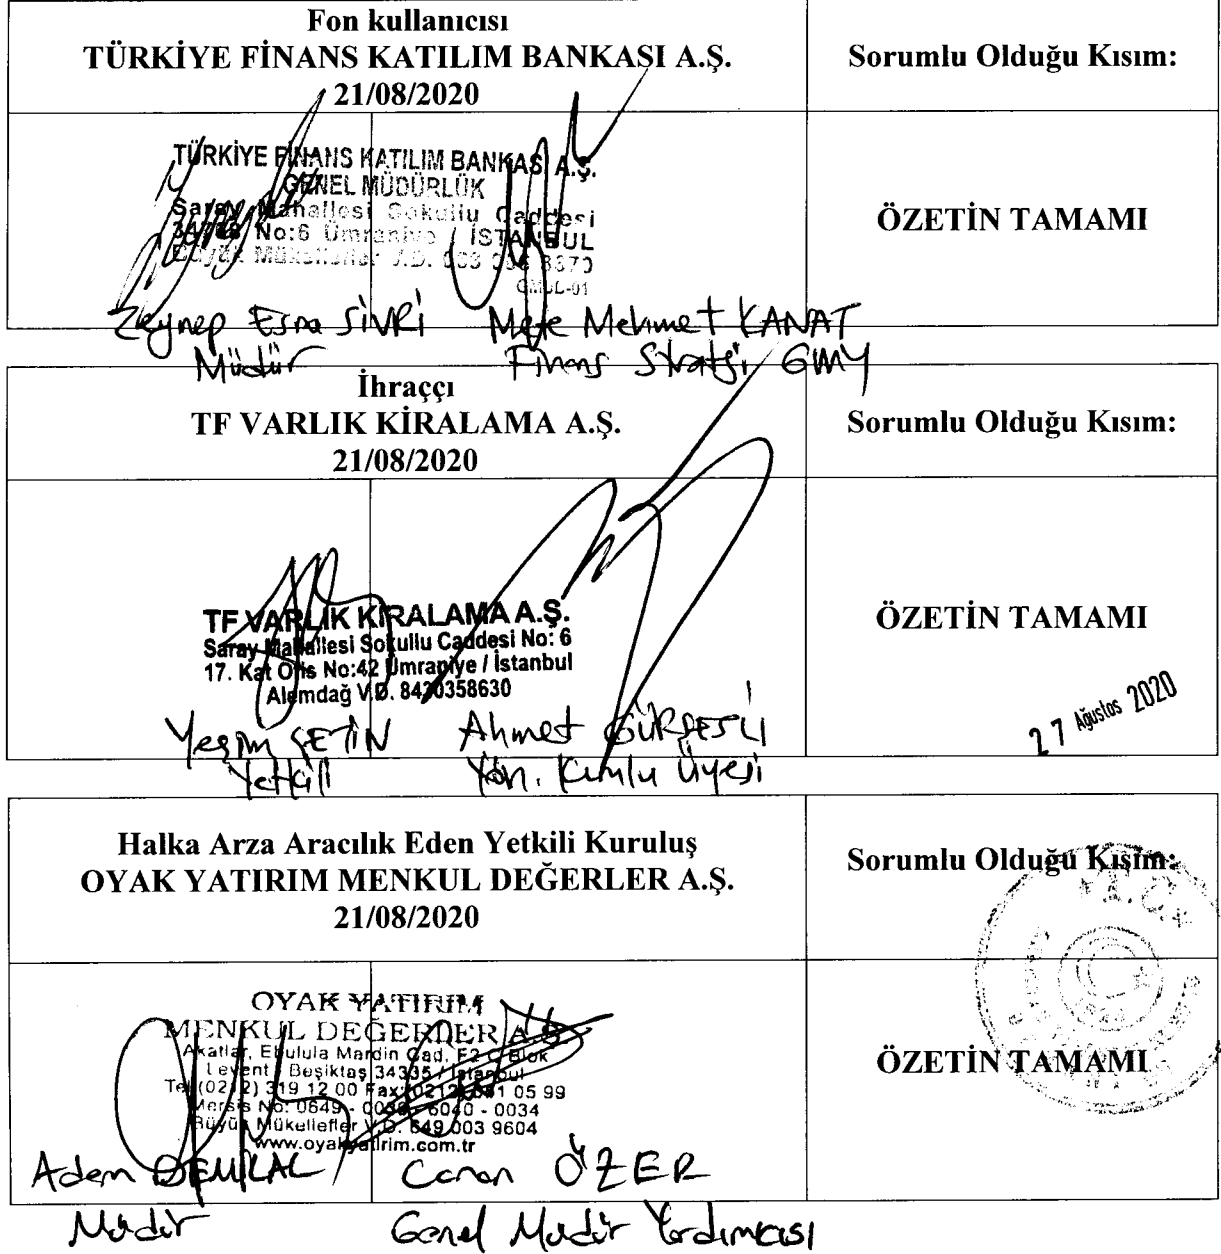 Fon kullanıcısı
TÜRKİYE FİNANS KATILIM BANKASI A.Ş.
21/08/2020
Sorumlu Olduğu Kısım:
TÜRKİYE FİNANS KATILIM BANKASI A.Ş.
GENEL MÜDÜRLÜK
Saray Mahallesi Sokullu Caddesi
No:6 Ümraniye / İSTANBUL
Büyük Mükellefler V.D.
ÖZETİN TAMAMI
Zeynep Esra SİVRİ
Müdür
Mete Mehmet KANAT
Finans Strateji GMY
İhraççı
TF VARLIK KİRALAMA A.Ş.
21/08/2020
Sorumlu Olduğu Kısım:
TF VARLIK KİRALAMA A.Ş.
Saray Mahallesi Sokullu Caddesi No: 6
17. Kat Ofis No:42 Ümraniye / İstanbul
Alemdağ V.D. 8420358630
ÖZETİN TAMAMI
27 Ağustos 2020
Yeşim ÇETİN
Yetkili
Ahmet
Yön. Kurulu Üyesi
Halka Arza Aracılık Eden Yetkili Kuruluş
OYAK YATIRIM MENKUL DEĞERLER A.Ş.
21/08/2020
Sorumlu Olduğu Kısım:
OYAK YATIRIM
MENKUL DEĞERLER A.Ş.
Akatlar, Ebulula Mardin Cad. F2 C Blok
Levent / Beşiktaş 34335 / İstanbul
Tel (0212) 319 12 00 Fax: (0212) 05 99
Mersis No: 0649 - - 6040 - 0034
Büyük Mükellefler V.D. 649 003 9604
www.oyakyatirim.com.tr
ÖZETİN TAMAMI
Adem
Müdür
Canan ÖZER
Genel Müdür Yardımcısı